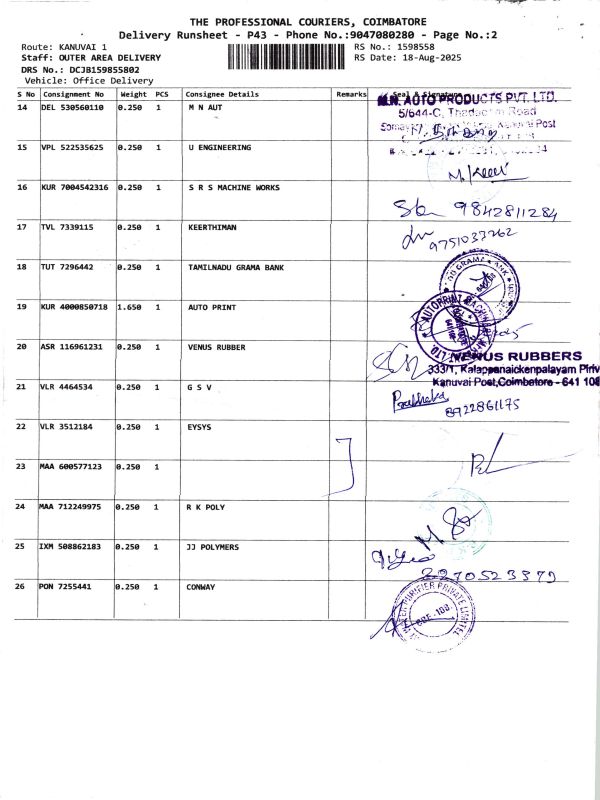 THE PROFESSIONAL COURIERS, COIMBATORE
Delivery Runsheet - P43 - Phone No.:9047080280 - Page No.:2
Route: KANUVAI 1
RS No.: 1598558
Staff: OUTER AREA DELIVERY
RS Date: 18-Aug-2025
DRS No.: DCJB159855802
Vehicle: Office Delivery
S No Consignment No Weight PCS Consignee Details Remarks Seal & Signature
14 DEL 530560110 0.250 1 M N AUT
M.N. AUTO PRODUCTS PVT. LTD.
5/644-C, Road
Post
15 VPL 522535625 0.250 1 U ENGINEERING
16 KUR 7004542316 0.250 1 S R S MACHINE WORKS
9842811284
17 TVL 7339115 0.250 1 KEERTHIMAN
9751037262
18 TUT 7296442 0.250 1 TAMILNADU GRAMA BANK
19 KUR 4000850718 1.650 1 AUTO PRINT
20 ASR 116961231 0.250 1 VENUS RUBBER
VENUS RUBBERS
333/1, Kalappanaickenpalayam Piriv
Kanuvai Post, Coimbatore - 641 108
21 VLR 4464534 0.250 1 G S V
Prabhakar
8922861175
22 VLR 3512184 0.250 1 EYSYS
23 MAA 600577123 0.250 1
24 MAA 712249975 0.250 1 R K POLY
25 IXM 508862183 0.250 1 JJ POLYMERS
2270523379
26 PON 7255441 0.250 1 CONWAY
PURIFIER PRIVATE LIMITED